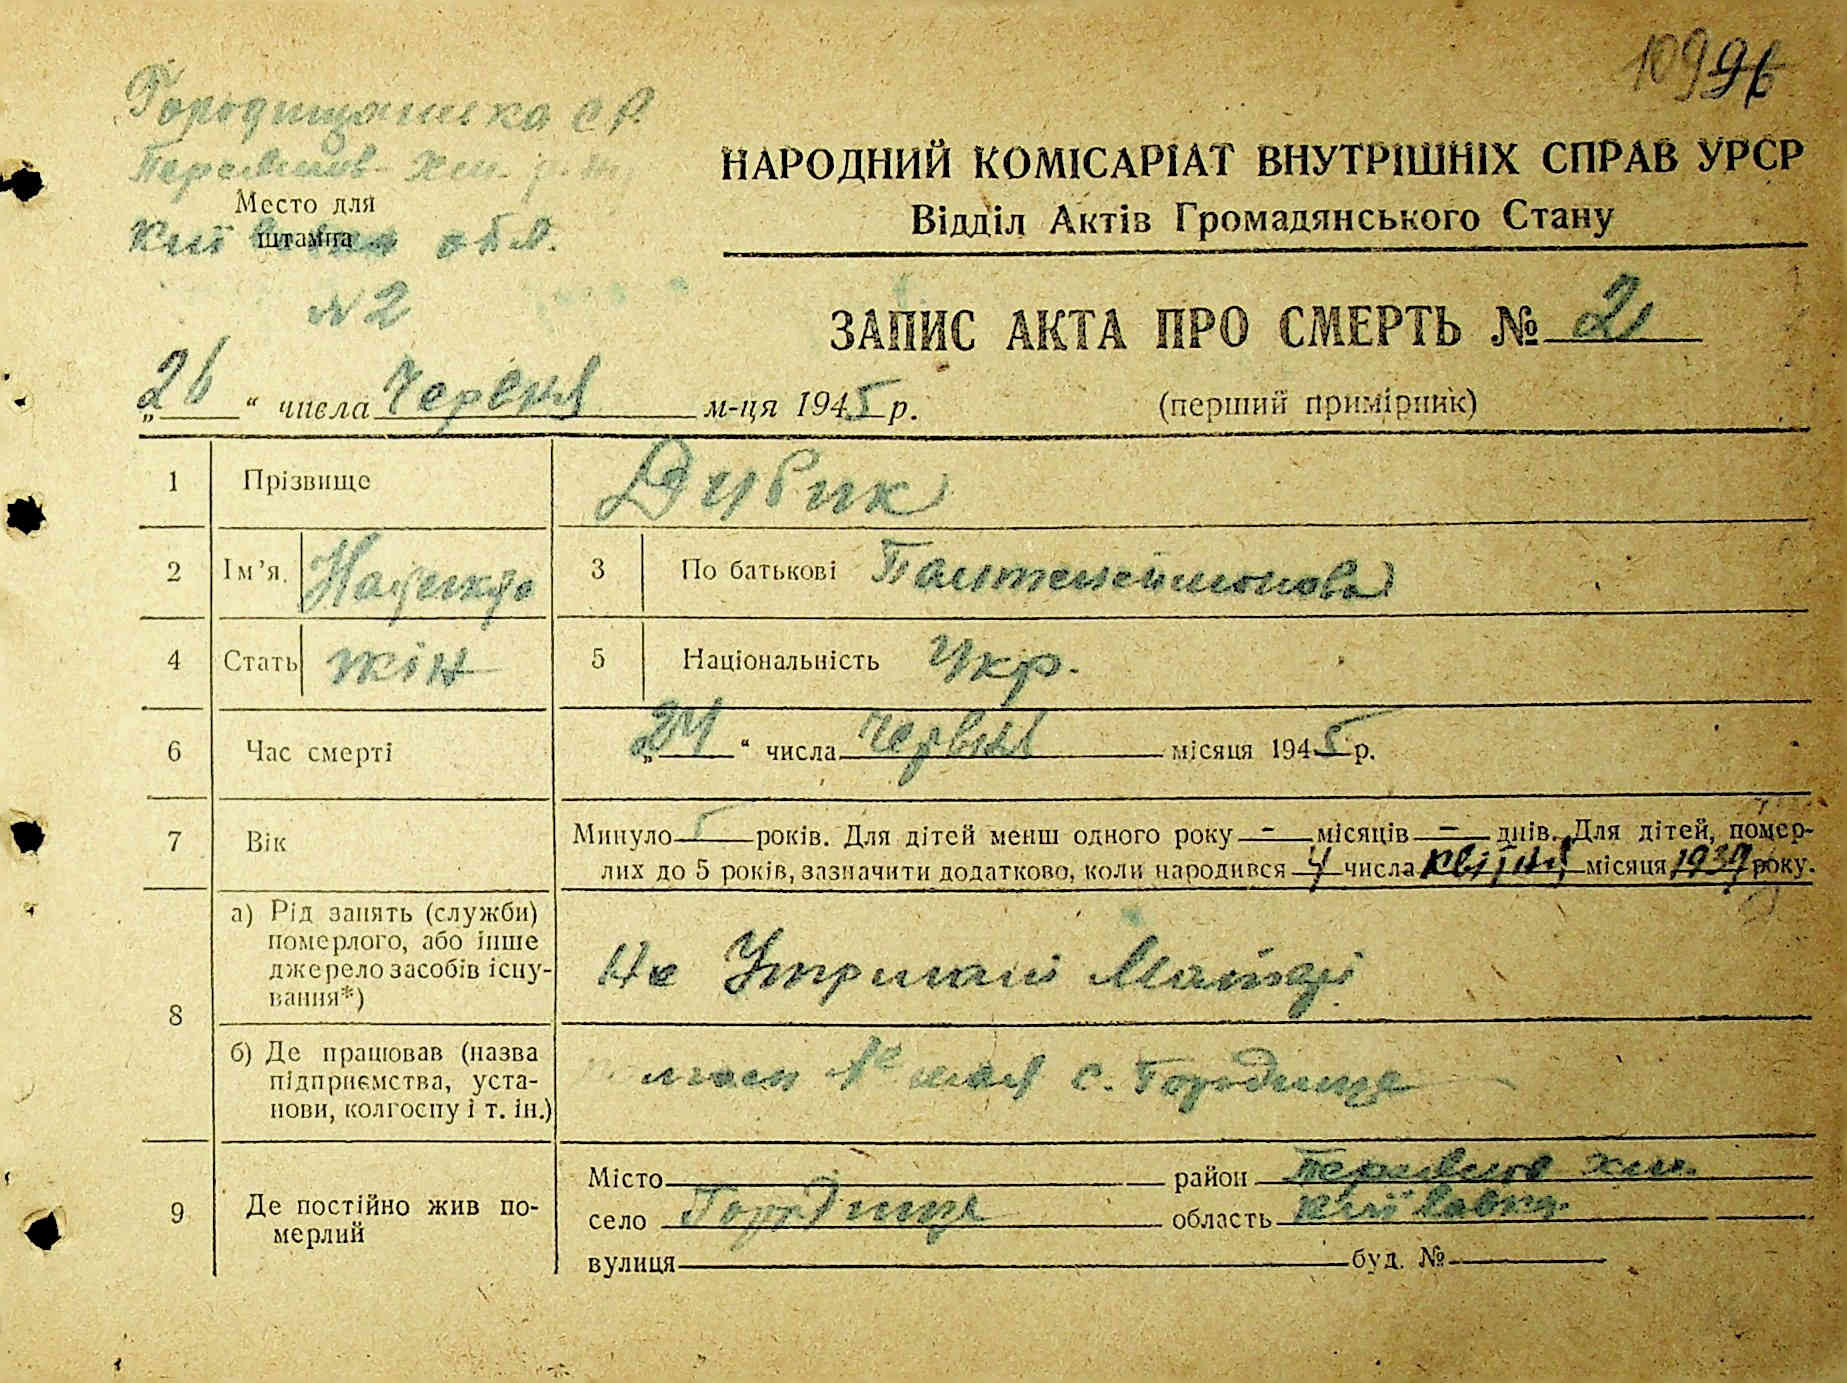 10996
Городищанська с/р
НАРОДНИЙ КОМІСАРІАТ ВНУТРІШНІХ СПРАВ УРСР
Переяслов-Хм. р-н
Место для
штампа
Відділ Актів Громадянського Стану
Київська обл.
N 2
ЗАПИС АКТА ПРО СМЕРТЬ № 2
„26“ числа Червня м-ця 1945 р.
(перший примірник)
1 Прізвище Дубик
2 Ім’я Надежда 3 По батькові
4 Стать жін 5 Національність Укр.
6 Час смерті „24“ числа червня місяця 1945 р.
7 Вік Минуло 5 років. Для дітей менш одного року - місяців - днів. Для дітей, помер-
лих до 5 років, зазначити додатково, коли народився 4 числа квітня місяця 1939 року.
8 а) Рід занять (служби)
померлого, або інше
джерело засобів існу-
вання*)
На Утримані Матері
б) Де працював (назва
підприємства, уста-
нови, колгоспу і т. ін.)
1е мая с. Городище
9 Де постійно жив по-
мерлий
Місто район Переяслов Хм.
село Городище область Київська
вулиця буд. №